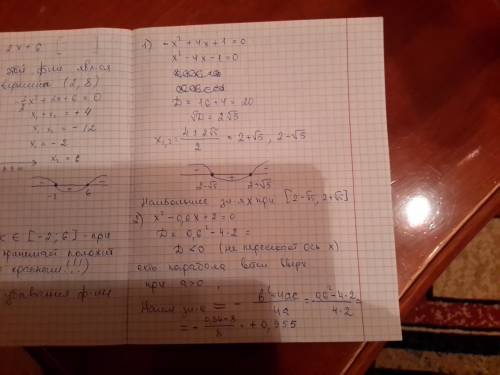 2x+6
этой ф-ии являлся
вершина (2, 8)
-1/2x²+2x+6=0
x₁+x₂=+4
x₁x₂=-12
x₁=-2
x₂=6
-2 6
x∈[-2;6]-при
принимает положит
красным!!!)
уравнения ф-ии
1) -x²+4x+1=0
x²-4x-1=0
D=16+4=20
√D=2√5
x₁,₂=(4±2√5)/2=2+√5, 2-√5
2-√5 2+√5
Наибольшее зн-я x при [2-√5, 2+√5]
2) x²-0,6x+2=0
D=0,6²-4·2=
D<0 (не пересекает ось x)
есть парабола ветви вверх
при a>0
зн-е = -(b²-4ac)/4a=(0,6²-4·2)/(4·2)=
=-(0,36-8)/8=+0,955